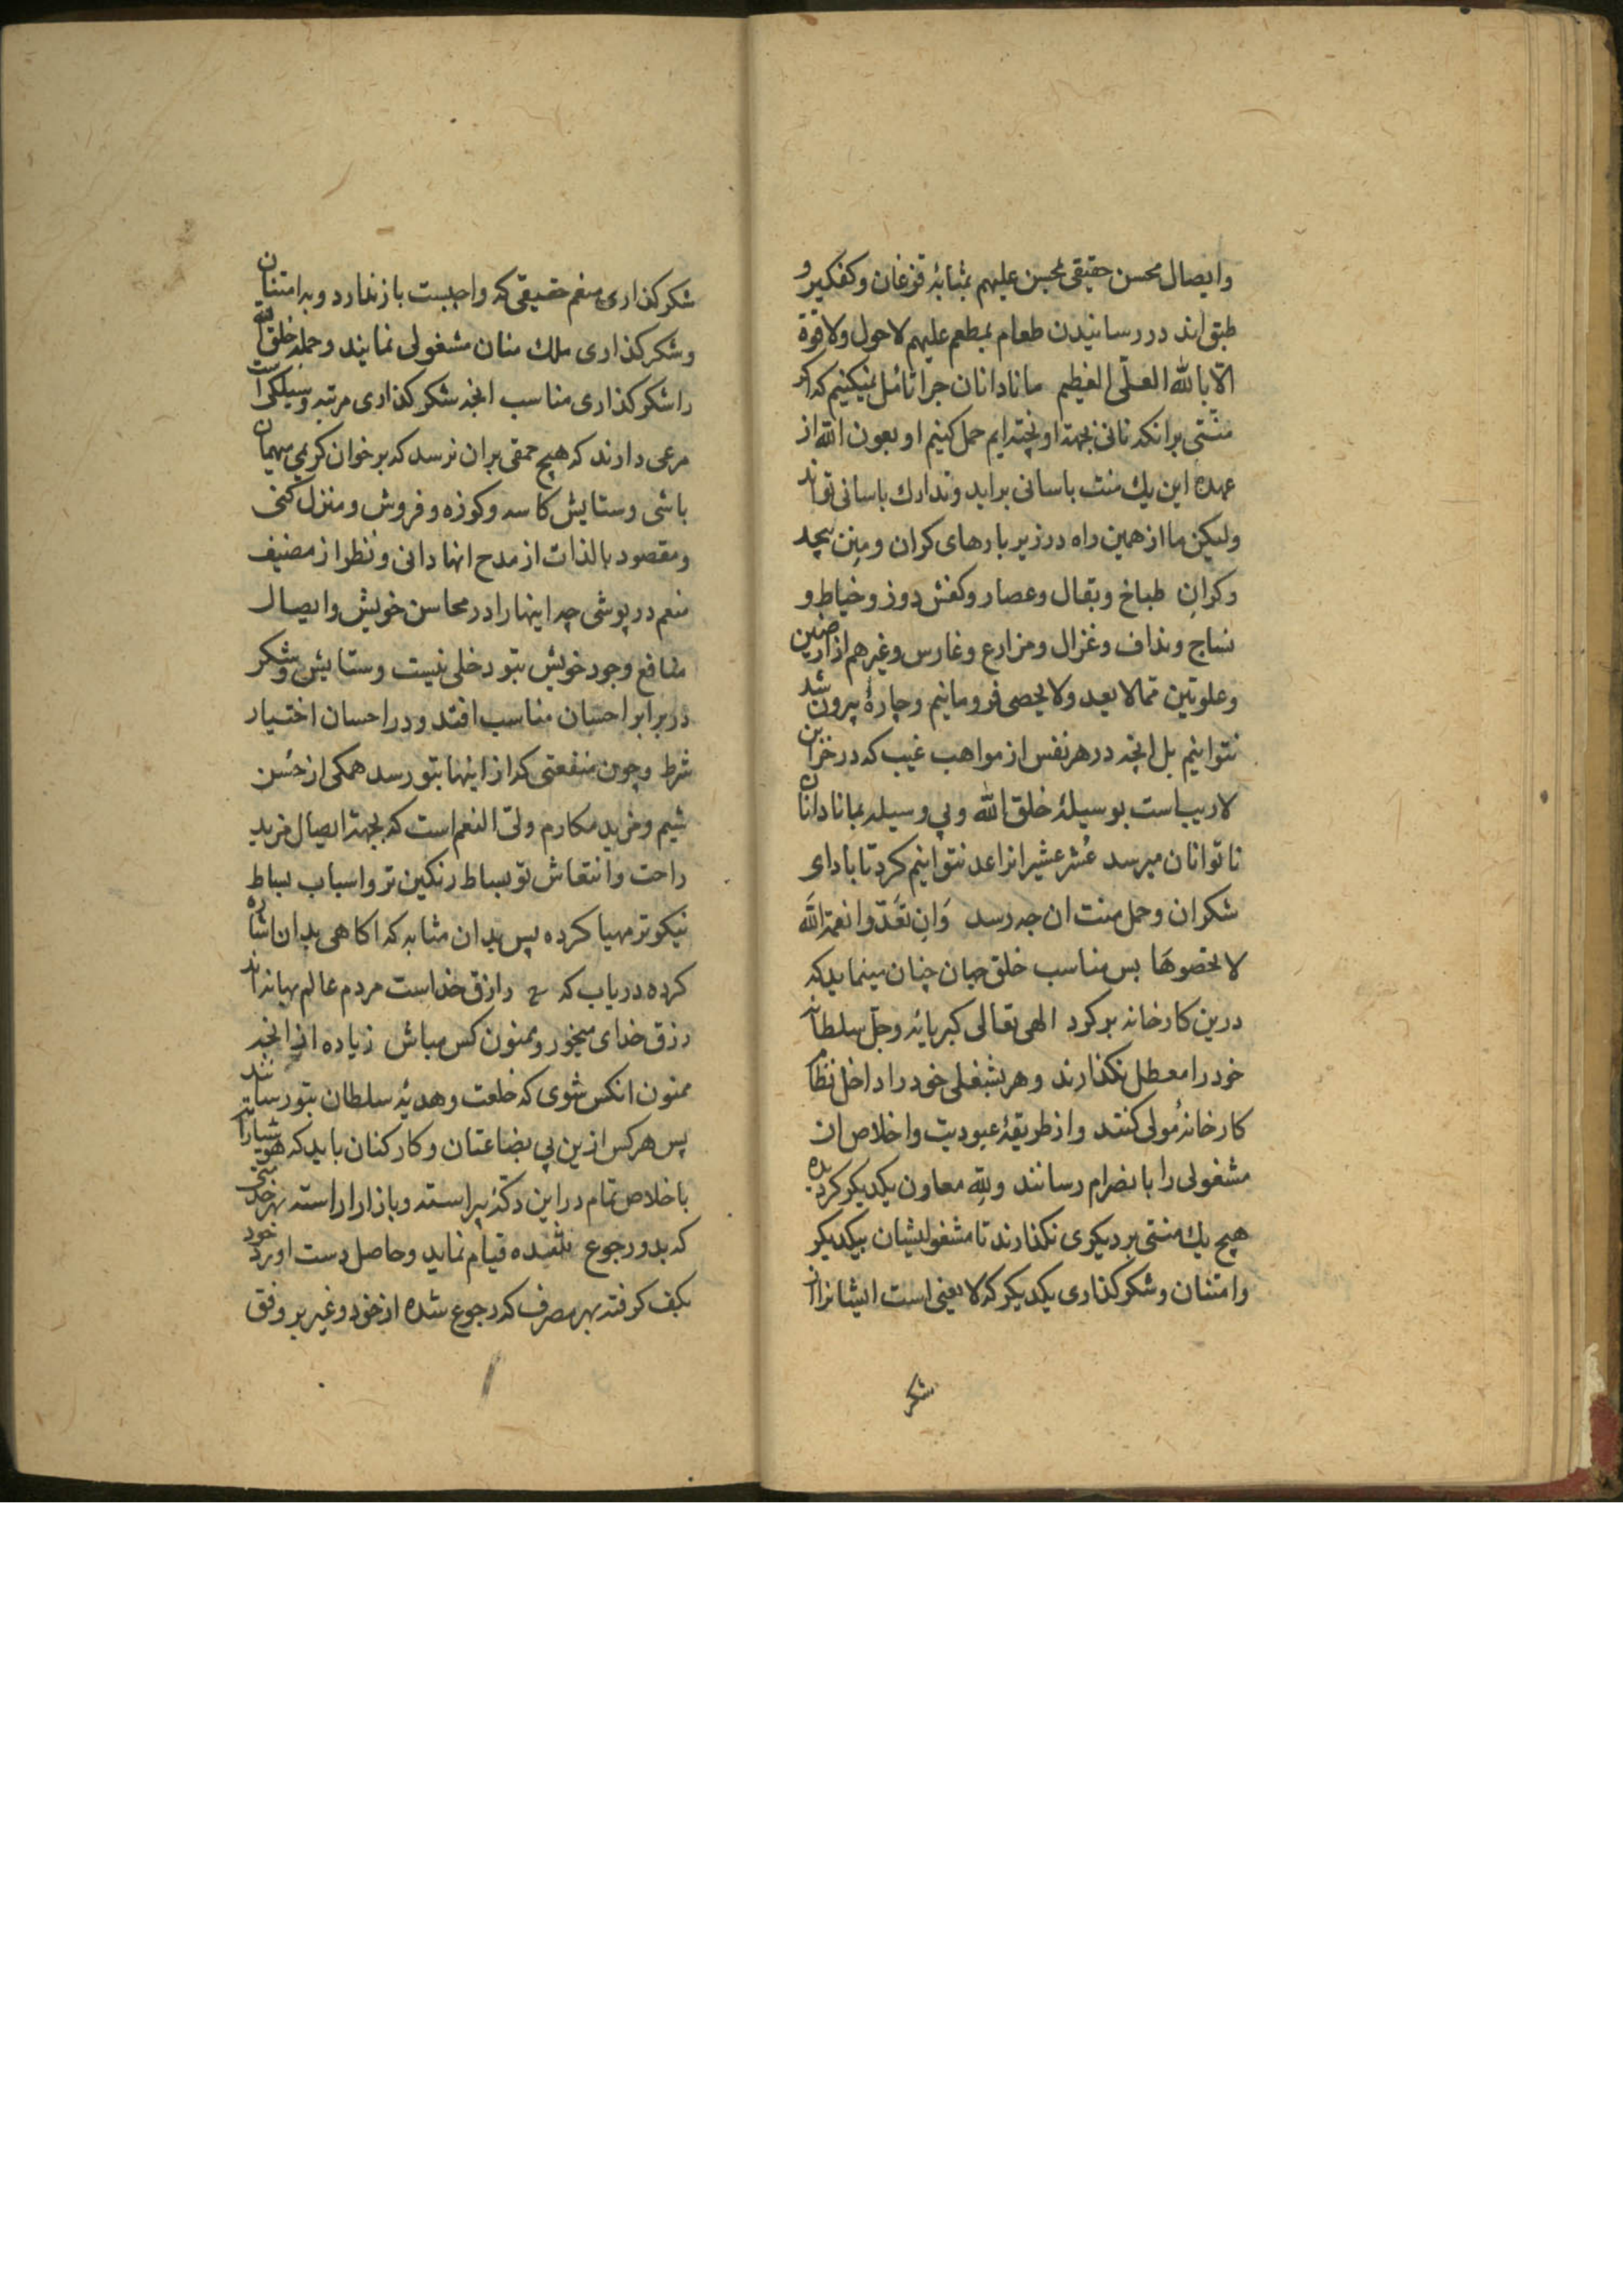 وایصال محسن حقیقی بمحسن علیهم بمثابهٔ قزغان وکفکیر و
طبق اند در رسانیدن طعام بمطعم علیهم لاحول ولا قوة
الّا بالله العلّی العظیم مانادانان چرا تامّل نمیکنیم که اکر
منّتی برانکه نانی بجهة او پخته ایم حمل کینم او بعون الله از
عهدهٔ این یك منت باسانی براید وتدارك باسانی تواند
ولیکن ما از همین راه در زیر بارهای کران ومِنن بیحد
وکرانِ طباخ وبقال وعصار وکفش دوز وخیاط و
نساج ونداف وغزال ومزارع وغارس وغیرهم از ارضین
وعلویّین ممّالا یعد ولا یحصی فرو مانیم وچارهٔ بیرون شد
نتوانیم بل انچه در هر نفس از مواهب غیب که در خزاین
لاریب است بوسیلهٔ خلق الله وبی وسیله بمانادانان
ناتوانان میرسد عُشر عشیر انرا عد نتوانیم کرد تا بادای
شکر ان وحمل منت ان چه رسد وَاِن تَعَدّوا نعمة اللهَ
لا تحصوهَا بس مناسب خلق جهان چنان مینماید که
درین کارخانه برکرد الهی تعالی کبریائه وجلّ سلطانه
خود را معطل نکذارند وهر بشغلی خود را داخل نظام
کارخانهٔ مولی کنند واز طریقهٔ عبودیت واخلاص ان
مشغولی را بانصرام رسانند ولِلّه معاون یکدیکر کردیده
هیچ یك منتی بر دیکری نکذارند تا مشغولیشان بیکدیکر
وامتنان وشکرکذاری یکدیکر که لایعنی است ایشانرا از
شکر
شکرکذاری منعم حقیقی که واجبست باز ندارد وبه امتنان
وشکرکذاری ملك منان مشغولی نمایند وجمله خلق الله
را شکرکذاری مناسب انچه شکرکذاری مرتبه وسیلکی است
مرعی دارند که هیچ حمقی بران نرسد که بر خوان کریمی میهمان
باشی وستایش کاسه وکوزه وفروش ومنزل کنی
ومقصود بالذات از مدح انها دانی ونظر از مضیف
منعم در پوشی چه اینها را در محاسن خویش وایصال
منافع وجود خویش بتو دخلی نیست وستایش وشکر
در برابر احسان مناسب افتد ودر احسان اختیار
شرط وچون منفعتی که از اینها بتو رسد همکی از حُسن
شیم ومزید مکارم ولیّ النعم است که بجهة ایصال مزید
راحت وانتعاش تو بساط رنکین تر واسباب بساط
نیکوتر مهیا کرده پس بدان مثابه که اکاهی بدان اشاره
کرده دریاب که رازق خداست مردم عالم بهانه اند
رزق خدای میخور وممنون کس مباش زیاده از انچه
ممنون انکس شوی که خلعت وهدیهٔ سلطان بتو رسانند
پس هر کس ازین بی بضاعتان وکارکنان باید که هوشیارانه
باخلاص تمام در این دکّهٔ پیراسته وبازار اراسته بهر خدمتی
که بدو رجوع شده قیام نماید وحاصل دست اورد خود
بکف کرفته بهر مصرف که رجوع شده از خود وغیر بر وفق